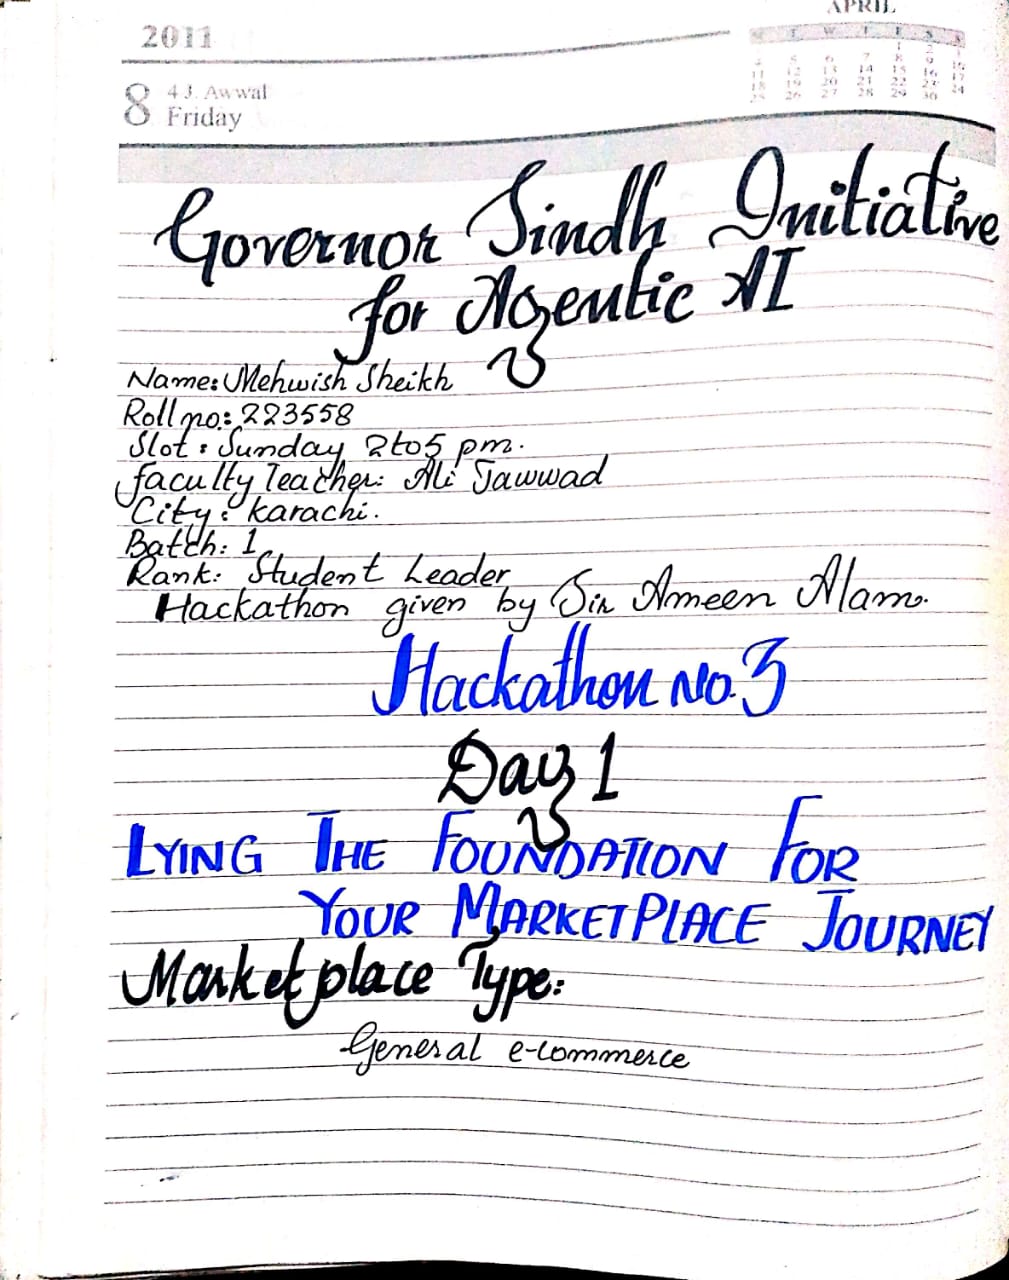 APRIL
2011
M T W T F S S
8 4 J. Awwal
Friday
Governor Sindh Initiative
for Agentic AI
Name: Mehwish Sheikh
Roll no: 223558
Slot: Sunday 2 to 5 pm.
faculty Teacher: Ali Jawwad
City: Karachi.
Batch: 1
Rank: Student Leader
Hackathon given by Sir Ameen Alam.
Hackathon No. 3
Day 1
LYING THE FOUNDATION FOR
YOUR MARKETPLACE JOURNEY
Marketplace Type:
General e-commerce